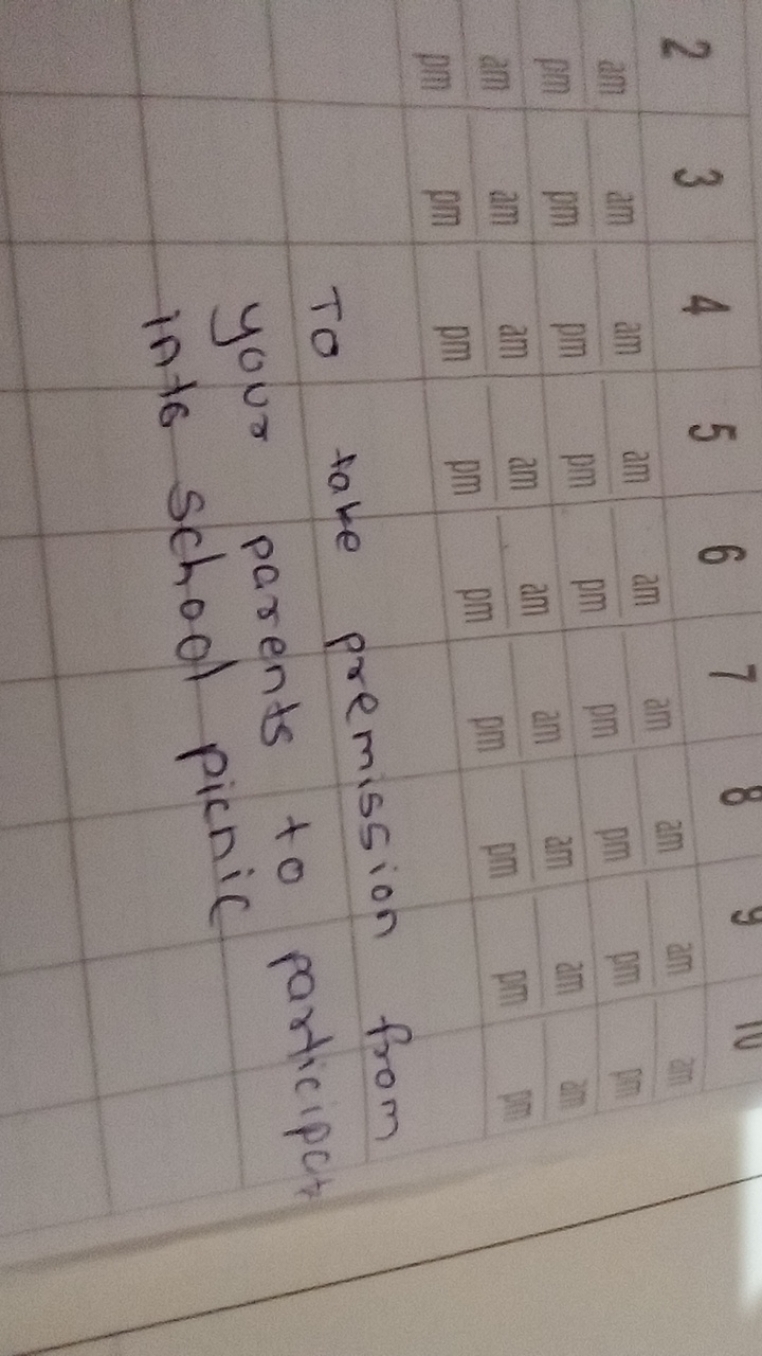 2 3 4 5 6 7 8 9 10
am am am am am am am am am
pm pm pm pm pm pm pm pm pm
am am am am am am am am am
pm pm pm pm pm pm pm pm pm
To take premission from
your parents to participat
into school picnic